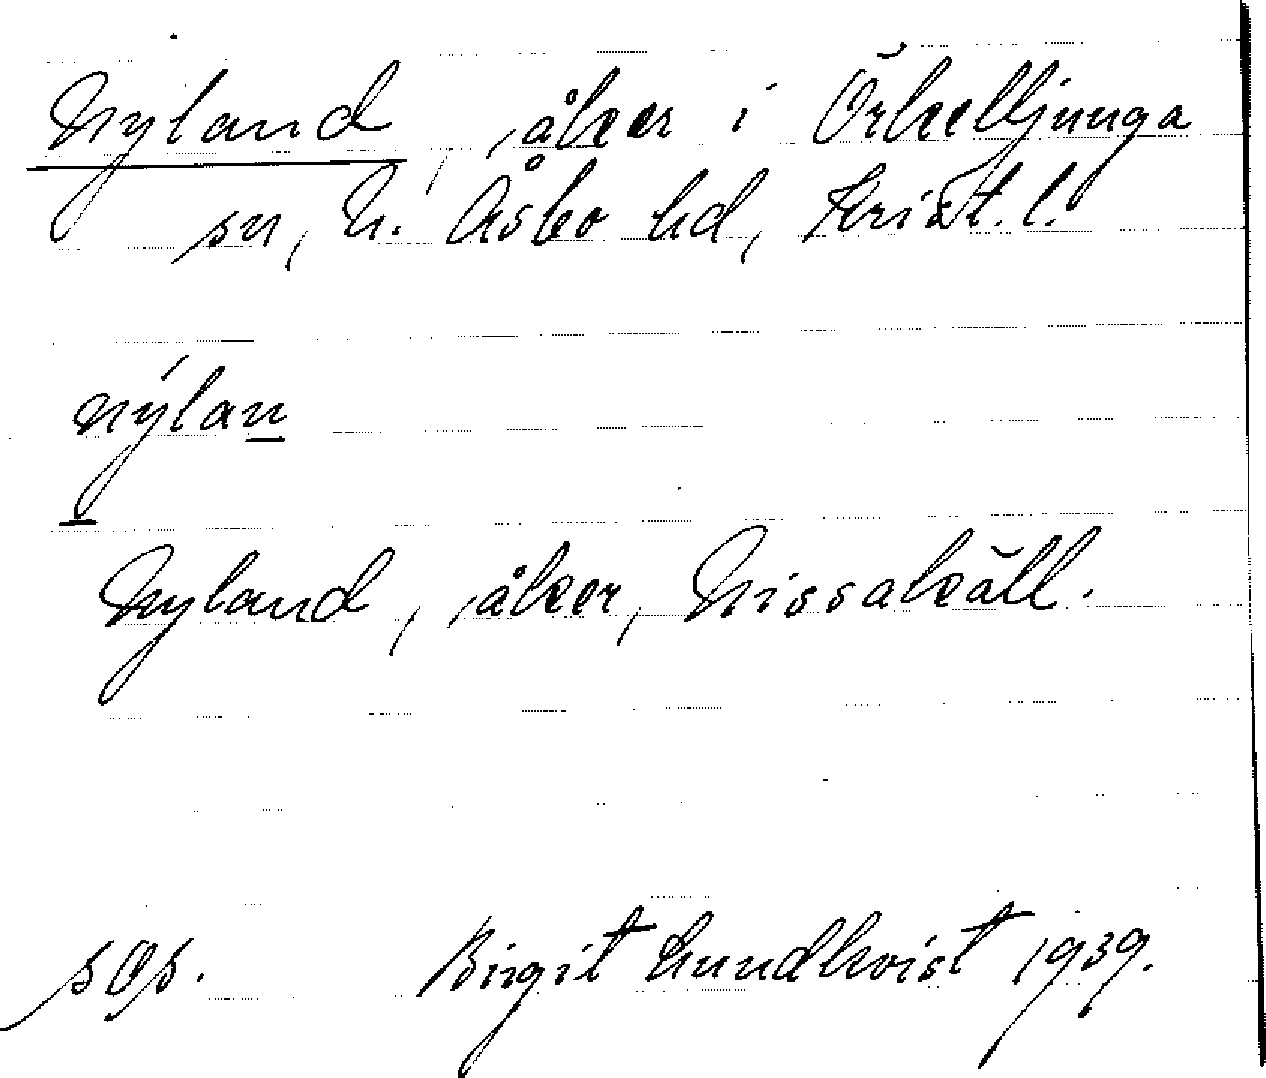 Nyland, åker i Örkelljunga
sn, N. Åsbo hd, Krist. l.
nýlan
Nyland, åker, Nissakäll.
sOs. Birgit Lundkvist 1939.